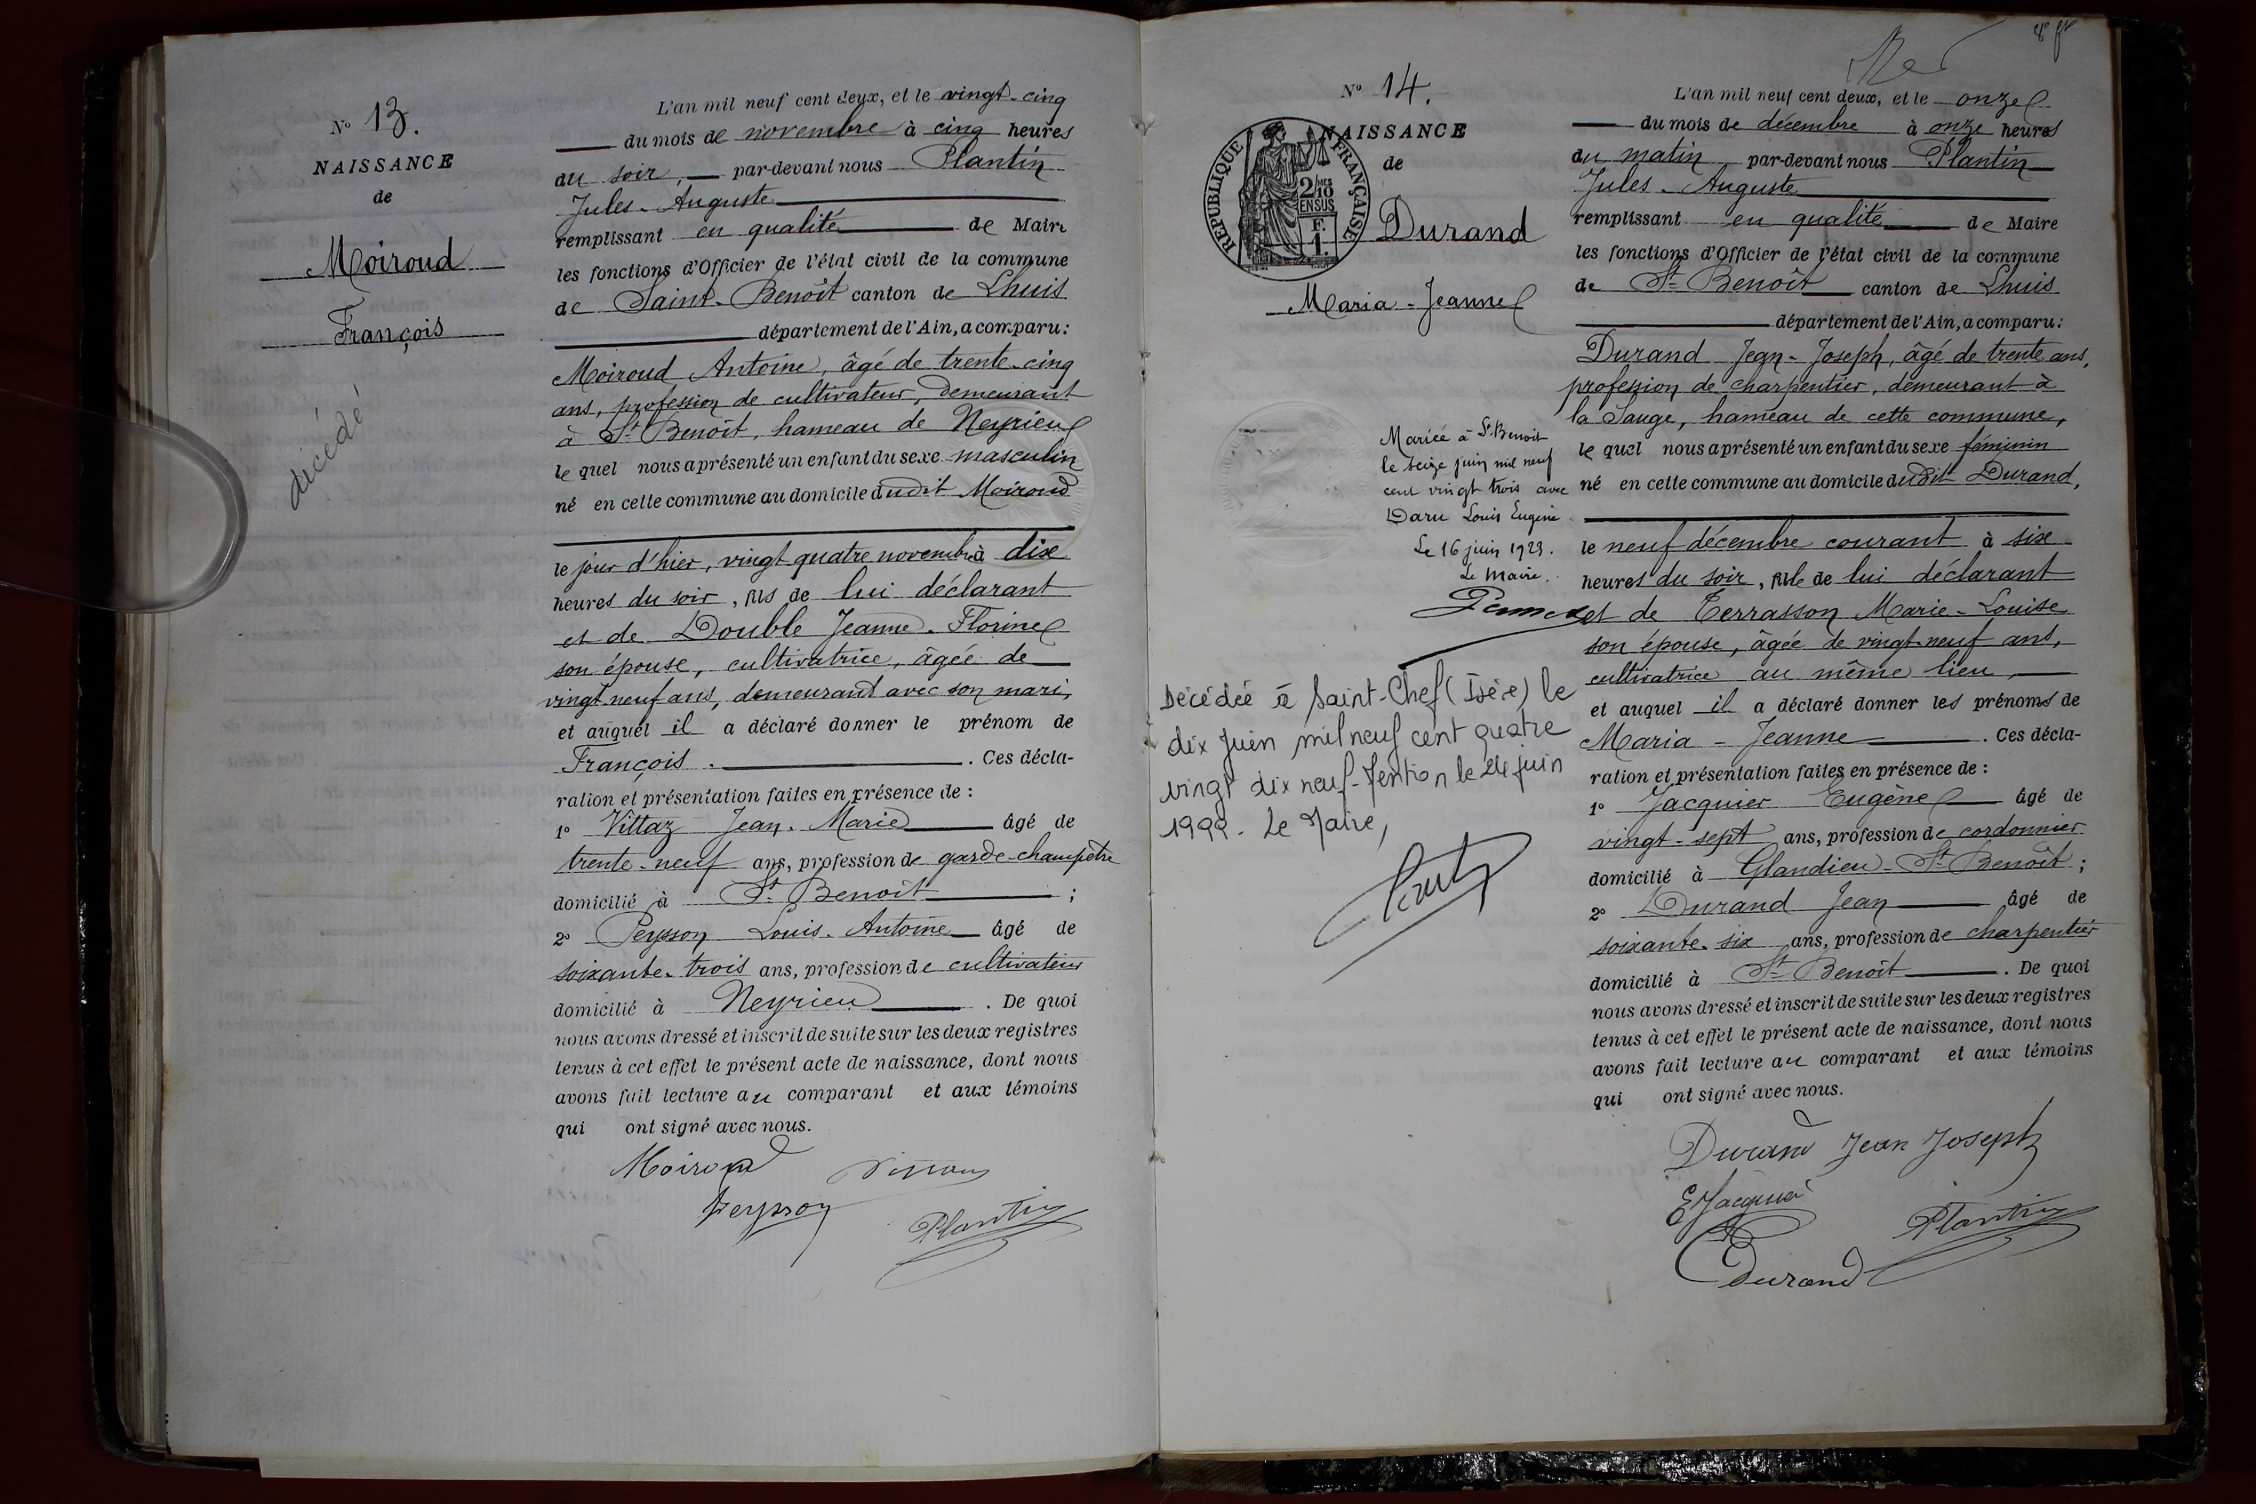 N° 13.
NAISSANCE
de
Moiroud
François
décédé
L'an mil neuf cent deux, et le vingt-cinq
du mois de novembre à cinq heures
du soir, par-devant nous Plantin
Jules-Auguste
remplissant en qualité de Maire
les fonctions d'Officier de l'état civil de la commune
de Saint-Benoît canton de Lhuis
département de l'Ain, a comparu:
Moiroud Antoine, âgé de trente-cinq
ans, profession de cultivateur, demeurant
à St Benoît, hameau de Neyrieu
le quel nous a présenté un enfant du sexe masculin
né en cette commune au domicile dudit Moiroud
le jour d'hier, vingt quatre novembre à dix
heures du soir, fils de lui déclarant
et de Double Jeanne-Florine
son épouse, cultivatrice, âgée de
vingt-neuf ans, demeurant avec son mari,
et auquel il a déclaré donner le prénom de
François. . Ces décla-
ration et présentation faites en présence de :
1° Vittaz Jean-Marie âgé de
trente-neuf ans, profession de garde-champêtre
domicilié à St Benoît ;
2° Peysson Louis-Antoine âgé de
soixante-trois ans, profession de cultivateur
domicilié à Neyrieu . De quoi
nous avons dressé et inscrit de suite sur les deux registres
tenus à cet effet le présent acte de naissance, dont nous
avons fait lecture au comparant et aux témoins
qui ont signé avec nous.
Moiroud
Peysson
Plantin
N° 14.
NAISSANCE
de
REPUBLIQUE FRANÇAISE
2/10 MES
EN SUS
F.
1.
Durand
Maria-Jeanne
Mariée à St Benoit
le seize juin mil neuf
cent vingt trois avec
Daru Louis Eugène
Le 16 juin 1923.
Le Maire.
Décédée à Saint-Chef (Isère) le
dix juin mil neuf cent quatre
vingt dix neuf - Mention le 24 juin
1999 - Le Maire,
L'an mil neuf cent deux, et le onze
du mois de décembre à onze heures
du matin par-devant nous Plantin
Jules-Auguste
remplissant en qualité de Maire
les fonctions d'Officier de l'état civil de la commune
de St Benoît canton de Lhuis
département de l'Ain, a comparu:
Durand Jean-Joseph, âgé de trente ans,
profession de charpentier, demeurant à
la Sauge, hameau de cette commune,
le quel nous a présenté un enfant du sexe féminin
né en cette commune au domicile dudit Durand,
le neuf décembre courant à six
heures du soir, fille de lui déclarant
et de Terrasson Marie-Louise
son épouse, âgée de vingt-neuf ans,
cultivatrice au même lieu,
et auquel il a déclaré donner les prénoms de
Maria-Jeanne . Ces décla-
ration et présentation faites en présence de :
1° Jacquier Eugène âgé de
vingt-sept ans, profession de cordonnier
domicilié à Glandieu-St Benoît ;
2° Durand Jean âgé de
soixante-six ans, profession de charpentier
domicilié à St Benoît . De quoi
nous avons dressé et inscrit de suite sur les deux registres
tenus à cet effet le présent acte de naissance, dont nous
avons fait lecture au comparant et aux témoins
qui ont signé avec nous.
Durand Jean Joseph
E Jacquier
Plantin
Durand